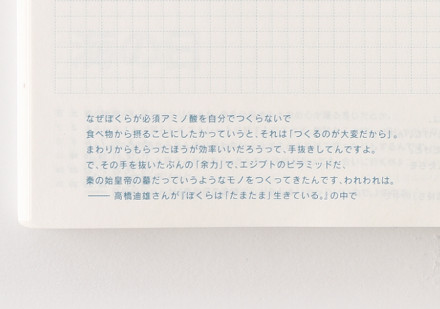 なぜぼくらが必須アミノ酸を自分でつくらないで
食べ物から摂ることにしたかっていうと、それは「つくるのが大変だから」。
まわりからもらったほうが効率いいだろうって、手抜きしてんですよ。
で、その手を抜いたぶんの「余力」で、エジプトのピラミッドだ、
秦の始皇帝の墓だっていうようなモノをつくってきたんです、われわれは。
―― 高橋迪雄さんが『ぼくらは「たまたま」生きている。』の中で